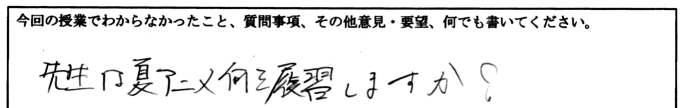 今回の授業でわからなかったこと、質問事項、その他意見・要望、何でも書いてください。
先生は夏アニメ何を履習しますか?